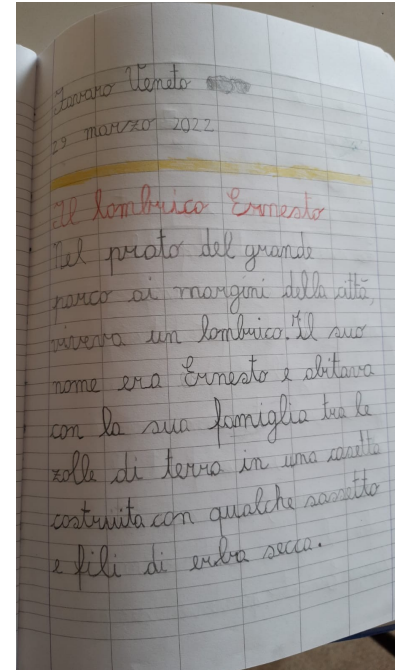 Favaro Veneto
29 marzo 2022
Il lombrico Ernesto
Nel prato del grande
parco ai margini della città,
viveva un lombrico. Il suo
nome era Ernesto e abitava
con la sua famiglia tra le
zolle di terra in una casetta
costruita con qualche sassetto
e fili di erba secca.